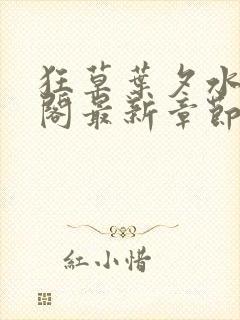 狂草葉夕水
閣最新章節
紅小惜